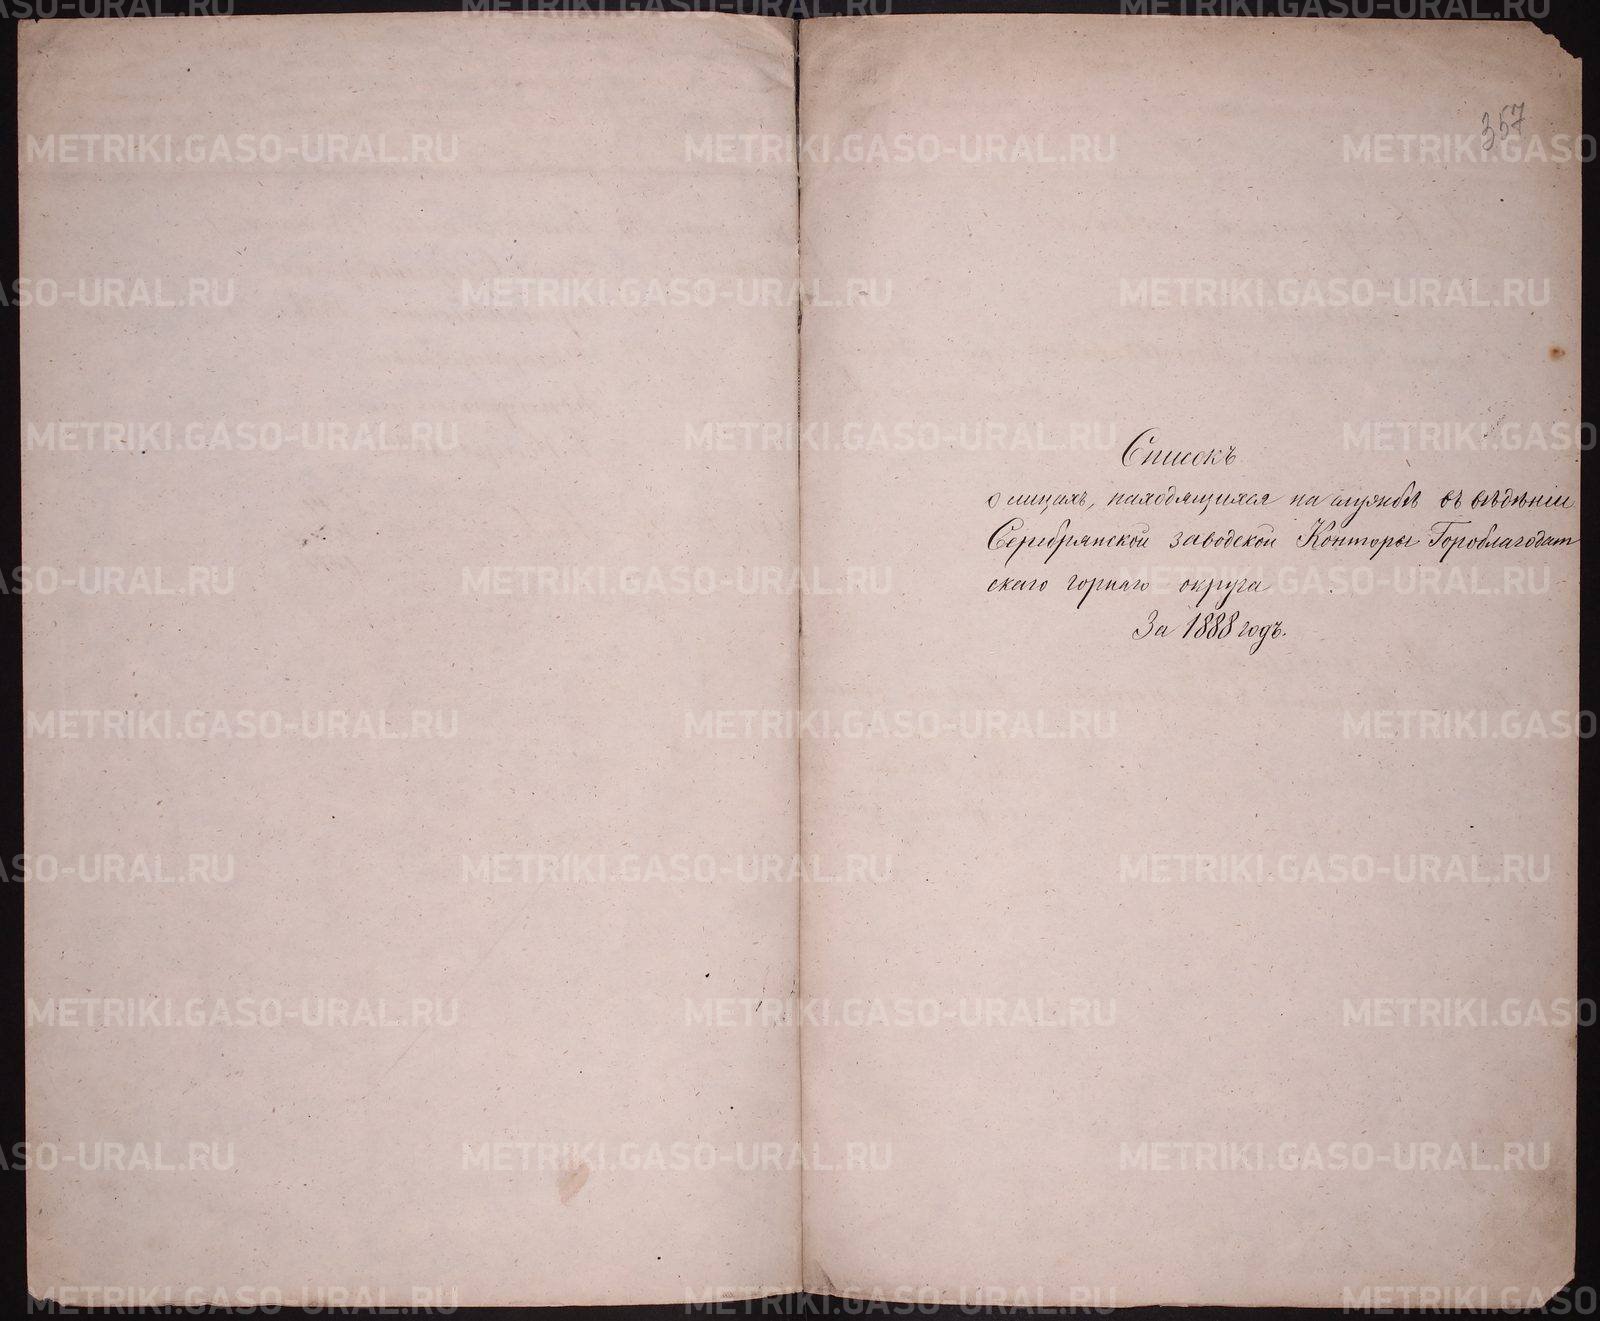 357
Списокъ
о лицахъ, находящихся на службѣ въ вѣдѣніи
Серебрянской заводской Конторы Гороблагодат
скаго горнаго округа
За 1888 годъ.
METRIKI.GASO-URAL.RU